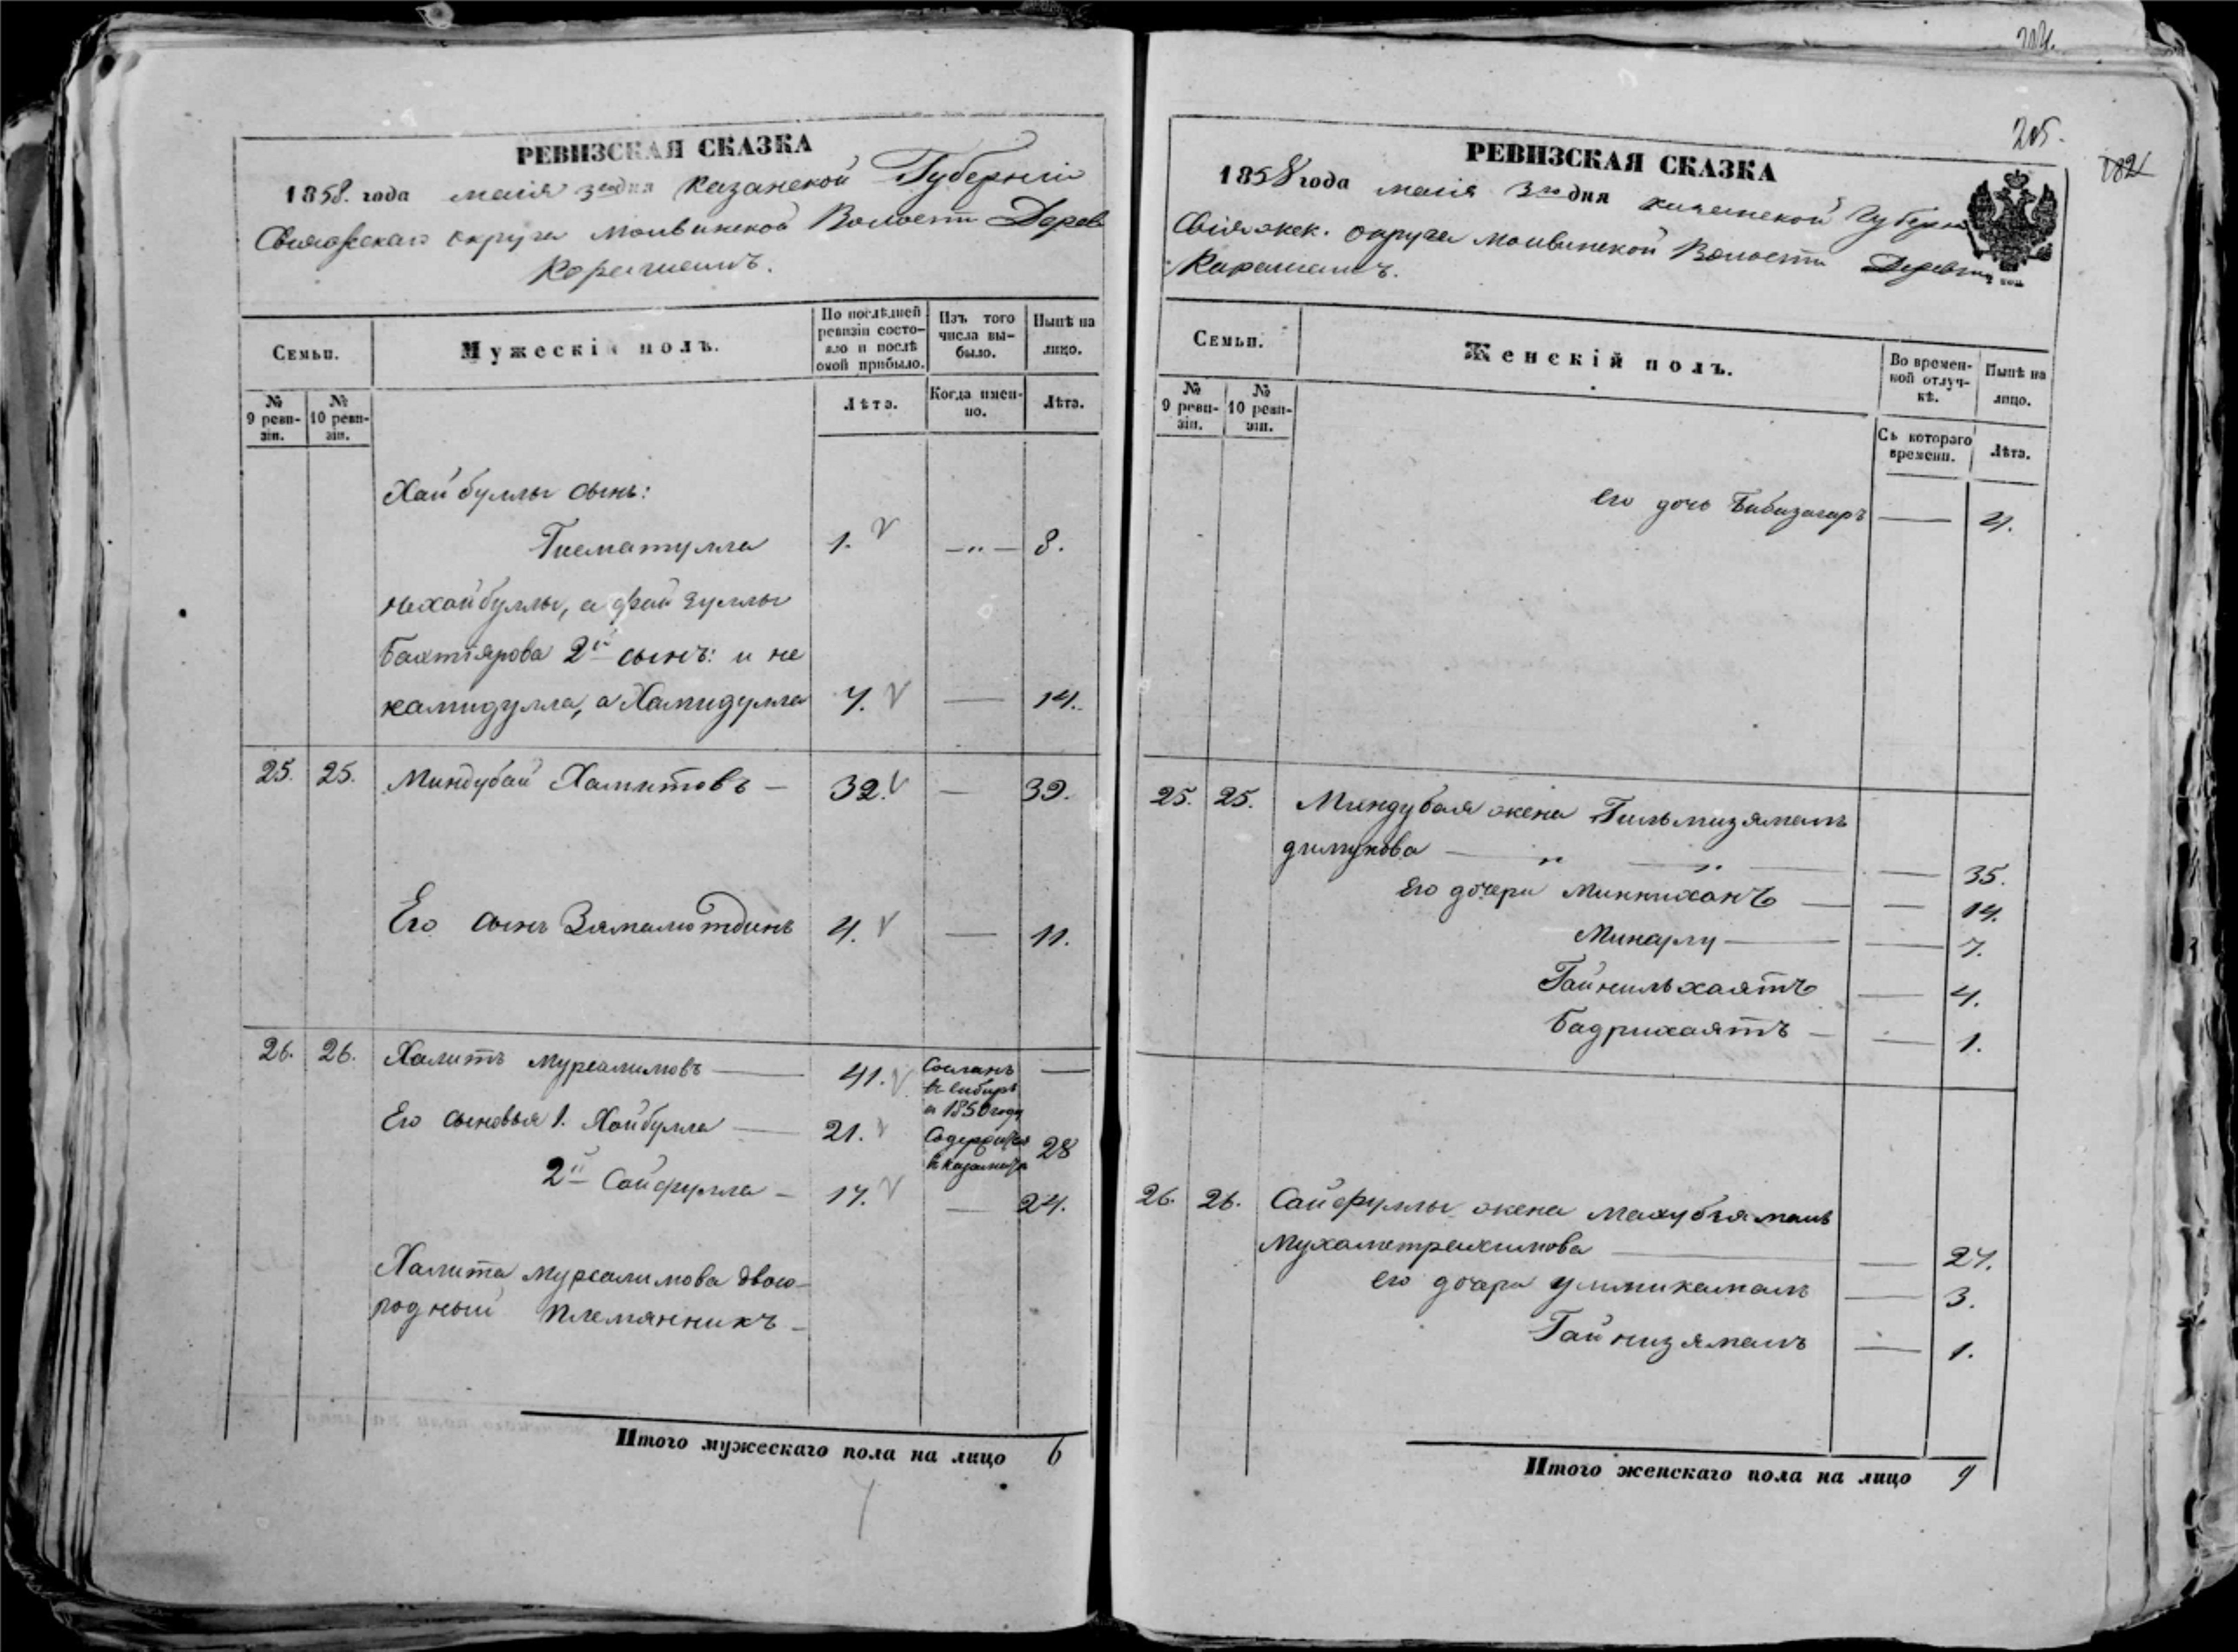 204.
РЕВИЗСКАЯ СКАЗКА
1858. года маія 3го дня Казанской Губерніи
Свіяжскаго округа Моивинской Волости Дерев
Карашамъ.
Семьи.
Мужескій полъ.
По послѣдней ревизіи состояло и послѣ оной прибыло.
Изъ того числа выбыло.
Нынѣ на лицо.
№ 9 ревизіи.
№ 10 ревизіи.
Лѣта.
Когда именно.
Лѣта.
Хайбуллы сынъ:
Гисматулла 1. — " — 8.
Нехайбуллы, а Файзуллы
Бахтіярова 2й сынъ: и не
камидулла, а Хамидулла 7. — 14.
25. 25. Миндубай Хамитовъ — 32. — 39.
Его сынъ Зямалютдинъ 4. — 11.
26. 26. Халитъ Мурсалимовъ — 41. Сосланъ —
въ Сибирь
в 1850 году
Его сыновья 1. Хайбулла — 21. Содержится 28
2й Сайфулла — 17. — 24.
Халита Мурсалимова двою-
родный племянникъ —
Итого мужескаго пола на лицо 6
205.
182
РЕВИЗСКАЯ СКАЗКА
1858 года маія 3го дня Казанской Губерн
Свіяжск. округа Моивинской Волости Деревни
Карашамъ.
Семьи.
Женскій полъ.
Во временной отлучкѣ.
Нынѣ на лицо.
№ 9 ревизіи.
№ 10 ревизіи.
Съ котораго времени.
Лѣта.
его дочь Бибизагаръ — 4.
25. 25. Миндубая жена Гильмизямалъ
— " — " — — 35.
Его дочери Минниханъ — — 14.
Минарлу — — 7.
Гайнильхаятъ — 4.
Бадрихаятъ — — 1.
26. 26. Сайфуллы жена Махубзямалъ
Мухаметрахимова — — 27.
его дочери Уммикамалъ — 3.
Гайнизямалъ — 1.
Итого женскаго пола на лицо 9